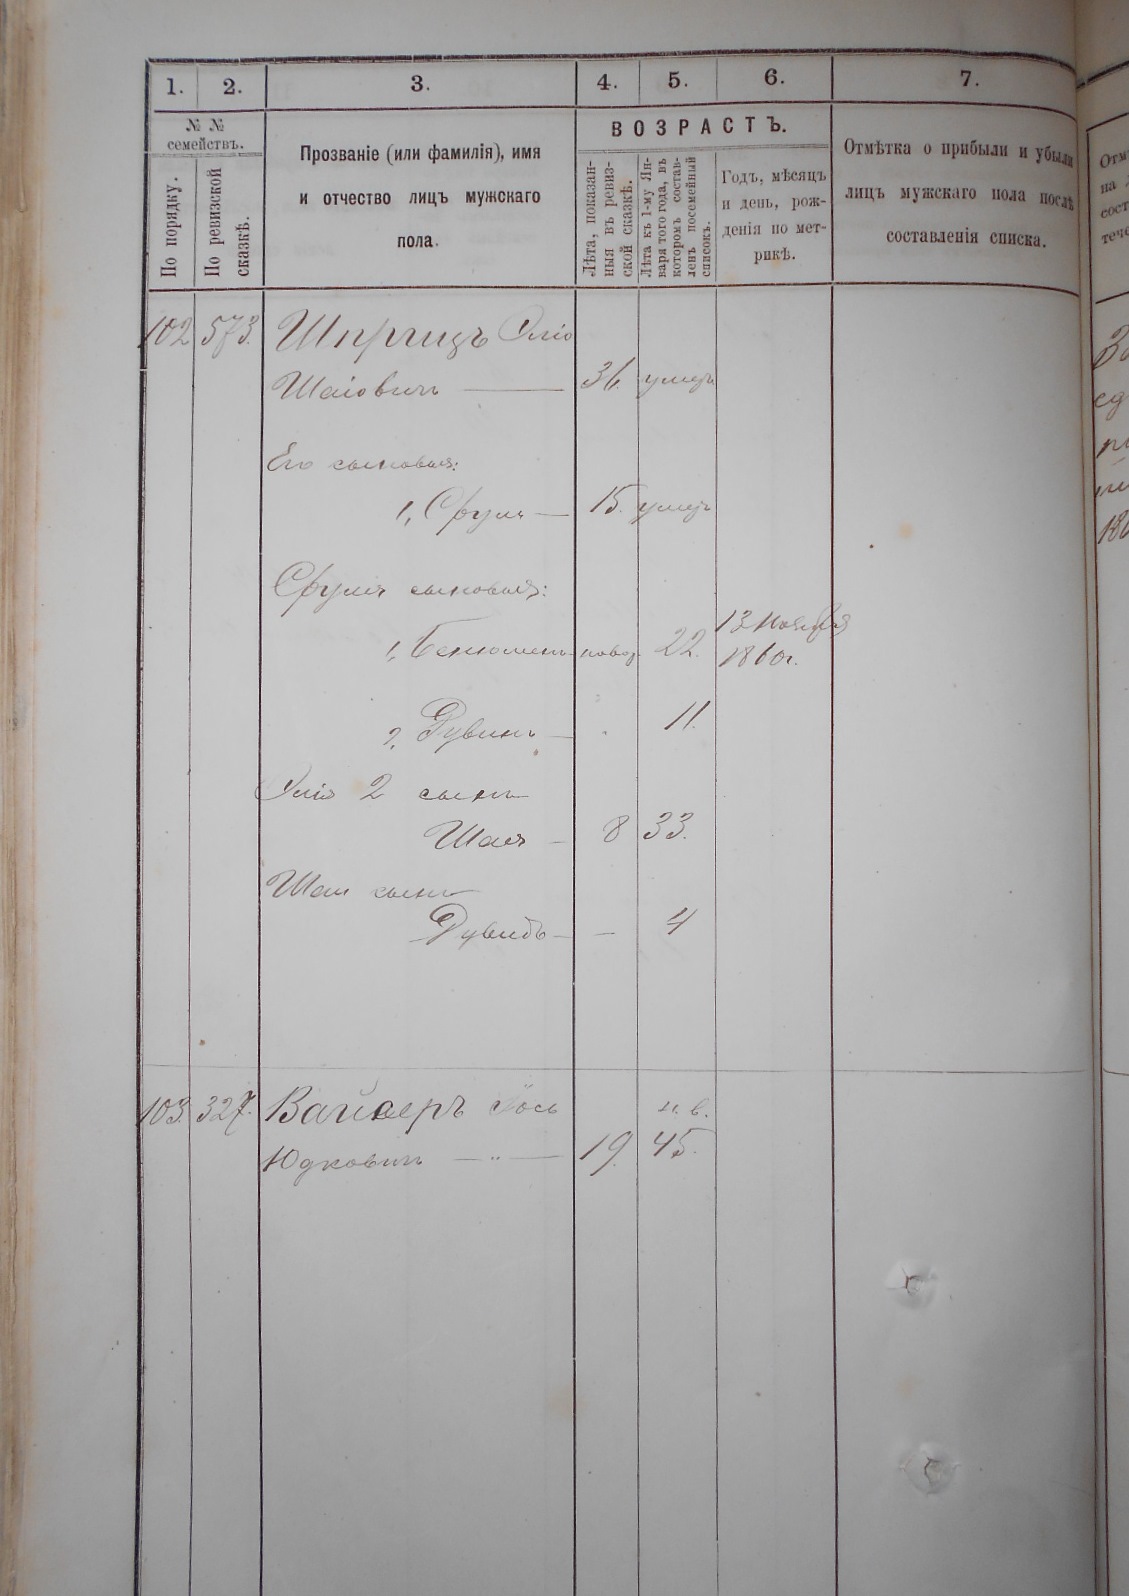 1. 2. 3. 4. 5. 6. 7.
№ № семействъ.
По порядку.
По ревизской сказкѣ.
Прозваніе (или фамилія), имя
и отчество лицъ мужскаго
пола.
ВОЗРАСТЪ.
Лѣта, показан-
ныя въ ревиз-
ской сказкѣ.
Лѣта къ 1-му Ян-
варя того года, въ
которомъ состав-
ленъ посемейный
списокъ.
Годъ, мѣсяцъ
и день, рож-
денія по мет-
рикѣ.
Отмѣтка о прибыли и убыли
лицъ мужскаго пола послѣ
составленія списка.
102 573. Шприцъ Эліо
Шаіовичъ 36. умеръ
Его сыновья:
1, Сруль 15. умеръ
Сруля сыновья:
1, Бенюминъ новор. 22. 13 Ноября
1860г.
2, Дувинъ 11.
Эліо 2 сынъ
Шая 8 33.
Шаи сынъ
Дувидъ — 4
103. 327. Вайсеръ Іось н. в.
Юдковичъ — „ — 19. 45.